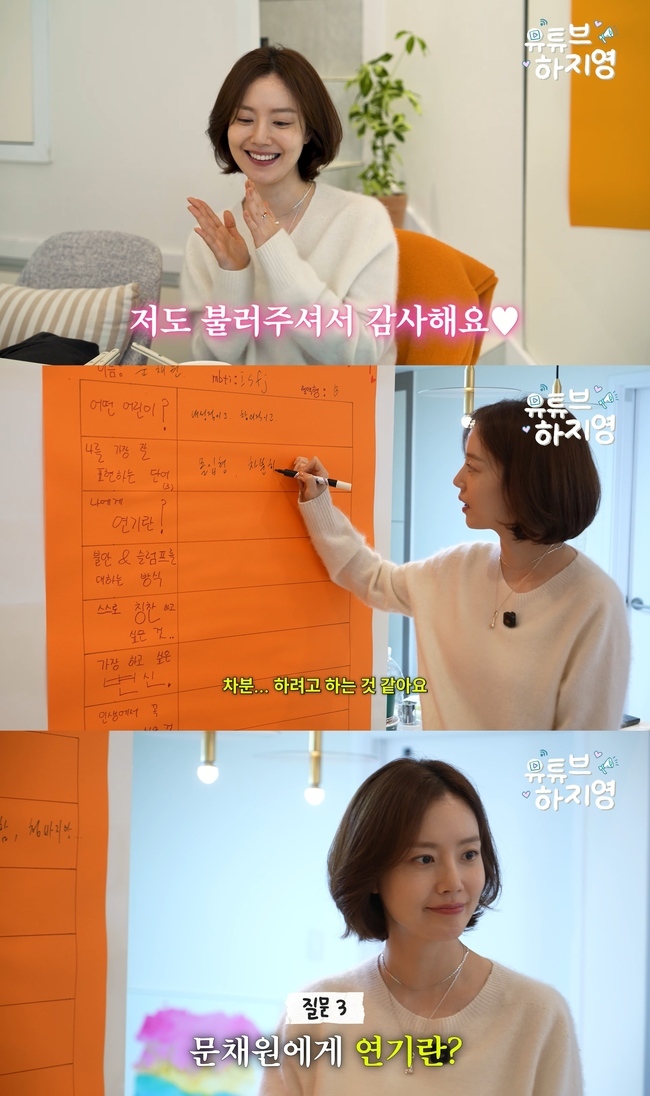 유튜브
하지영
저도 불러주셔서 감사해요♥
이름: 문채원
mbti: isfj
혈액형:
어떤 어린이?
나를 가장 잘
표현하는 단어
몰입형 차분히
나에게
연기란?
불안 & 슬럼프를
대하는 방식
스스로 칭찬하고
싶은 것..
가장 하고 싶은
변신.
인생에서 꼭
유튜브
하지영
차분... 하려고 하는 것 같아요
유튜브
하지영
질문 3
문채원에게 연기란?